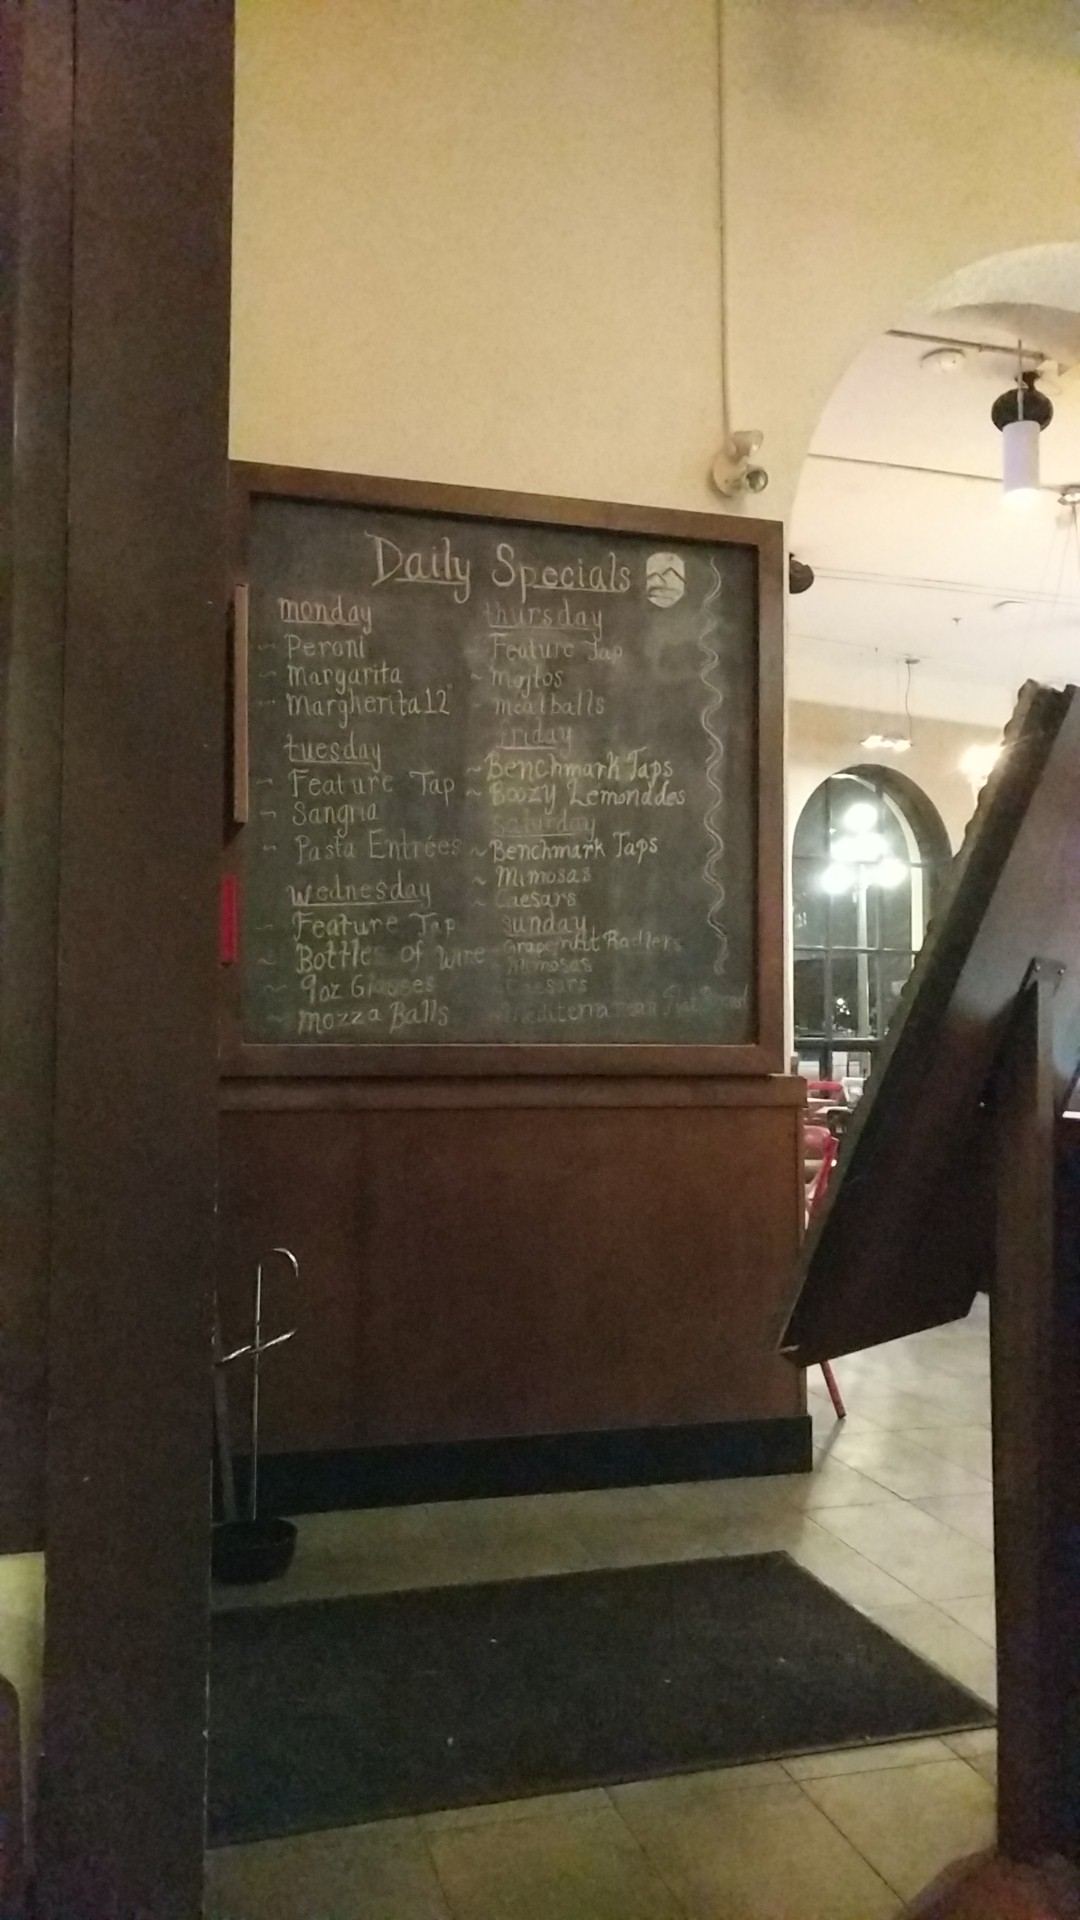 Daily Specials
monday
~ Peroni
~ Margarita
~ Margherita 12"
tuesday
~ Feature Tap
~ Sangria
~ Pasta Entrées
wednesday
~ Feature Tap
~ Bottles of Wine
~ 9oz Glasses
~ Mozza Balls
thursday
~ Feature Tap
~ Mojtos
~ meatballs
friday
~ Benchmark Taps
~ Boozy Lemonades
saturday
~ Benchmark Taps
~ Mimosas
~ Caesars
sunday
~ Grapefruit Radlers
~ Mimosas
~ Caesars
~ Mediterranean Flat Bread